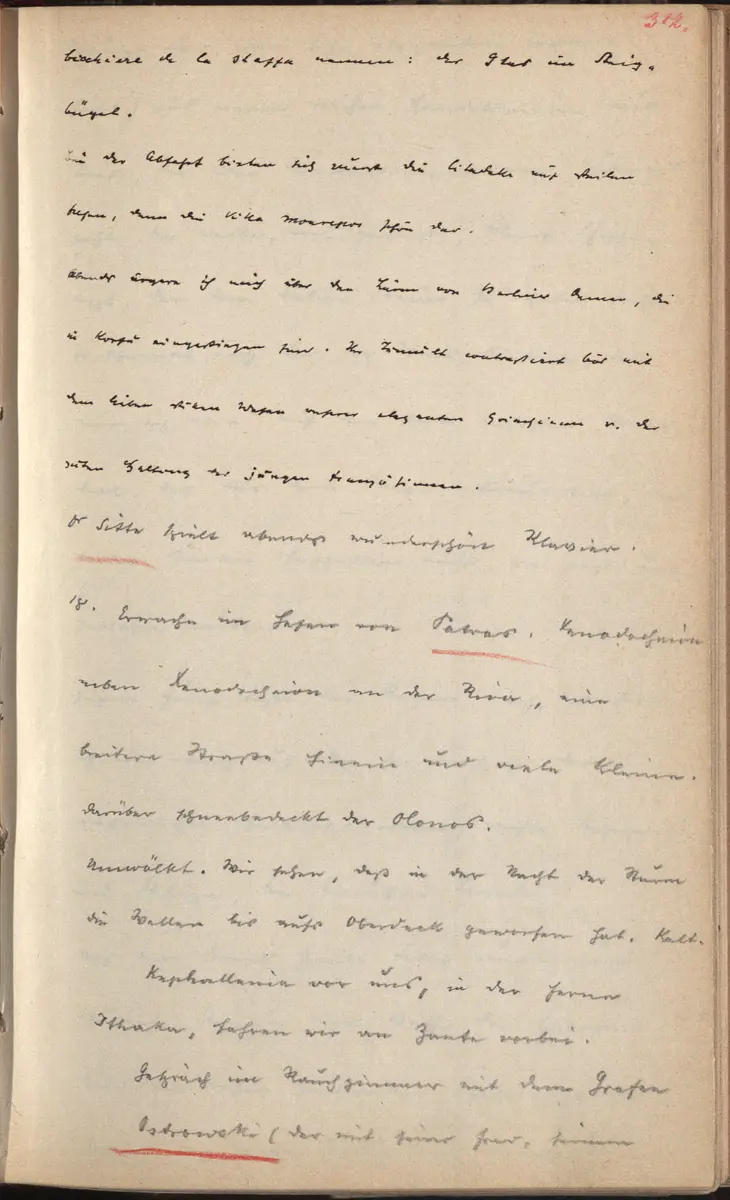 312.
bicchiere de la staffa nennen: der Glas im Steig-
bügel.
Bei der Abfahrt bieten sich zuerst die Citadelle auf steilen
Felsen, dann die Villa Monrepos schön dar.
Abends ärgere ich mich über den Lärm von Berliner Damen, die
in Korfu eingestiegen sind. Ihr Tumult contrastiert bös mit
dem stillen Wesen unserer eleganten Griechinnen u. der
guten Haltung der jungen Französinnen.
Dr Sitte spielt abends wunderschön Klavier.
18. Erwache im Hafen von Patras. Xenodocheion
neben Xenodocheion an der Riva, eine
breitere Straße hinein und viele kleine.
darüber schneebedeckt der Olonos.
Umwölkt. Wir sehen, daß in der Nacht der Sturm
die Wellen bis aufs Oberdeck geworfen hat. Kalt.
Kephallenia vor uns, in der Ferne
Ithaka, fahren wir an Zante vorbei.
Gespräch im Rauchzimmer mit dem Grafen
Ostrowski (der mit seiner Frau, seinem